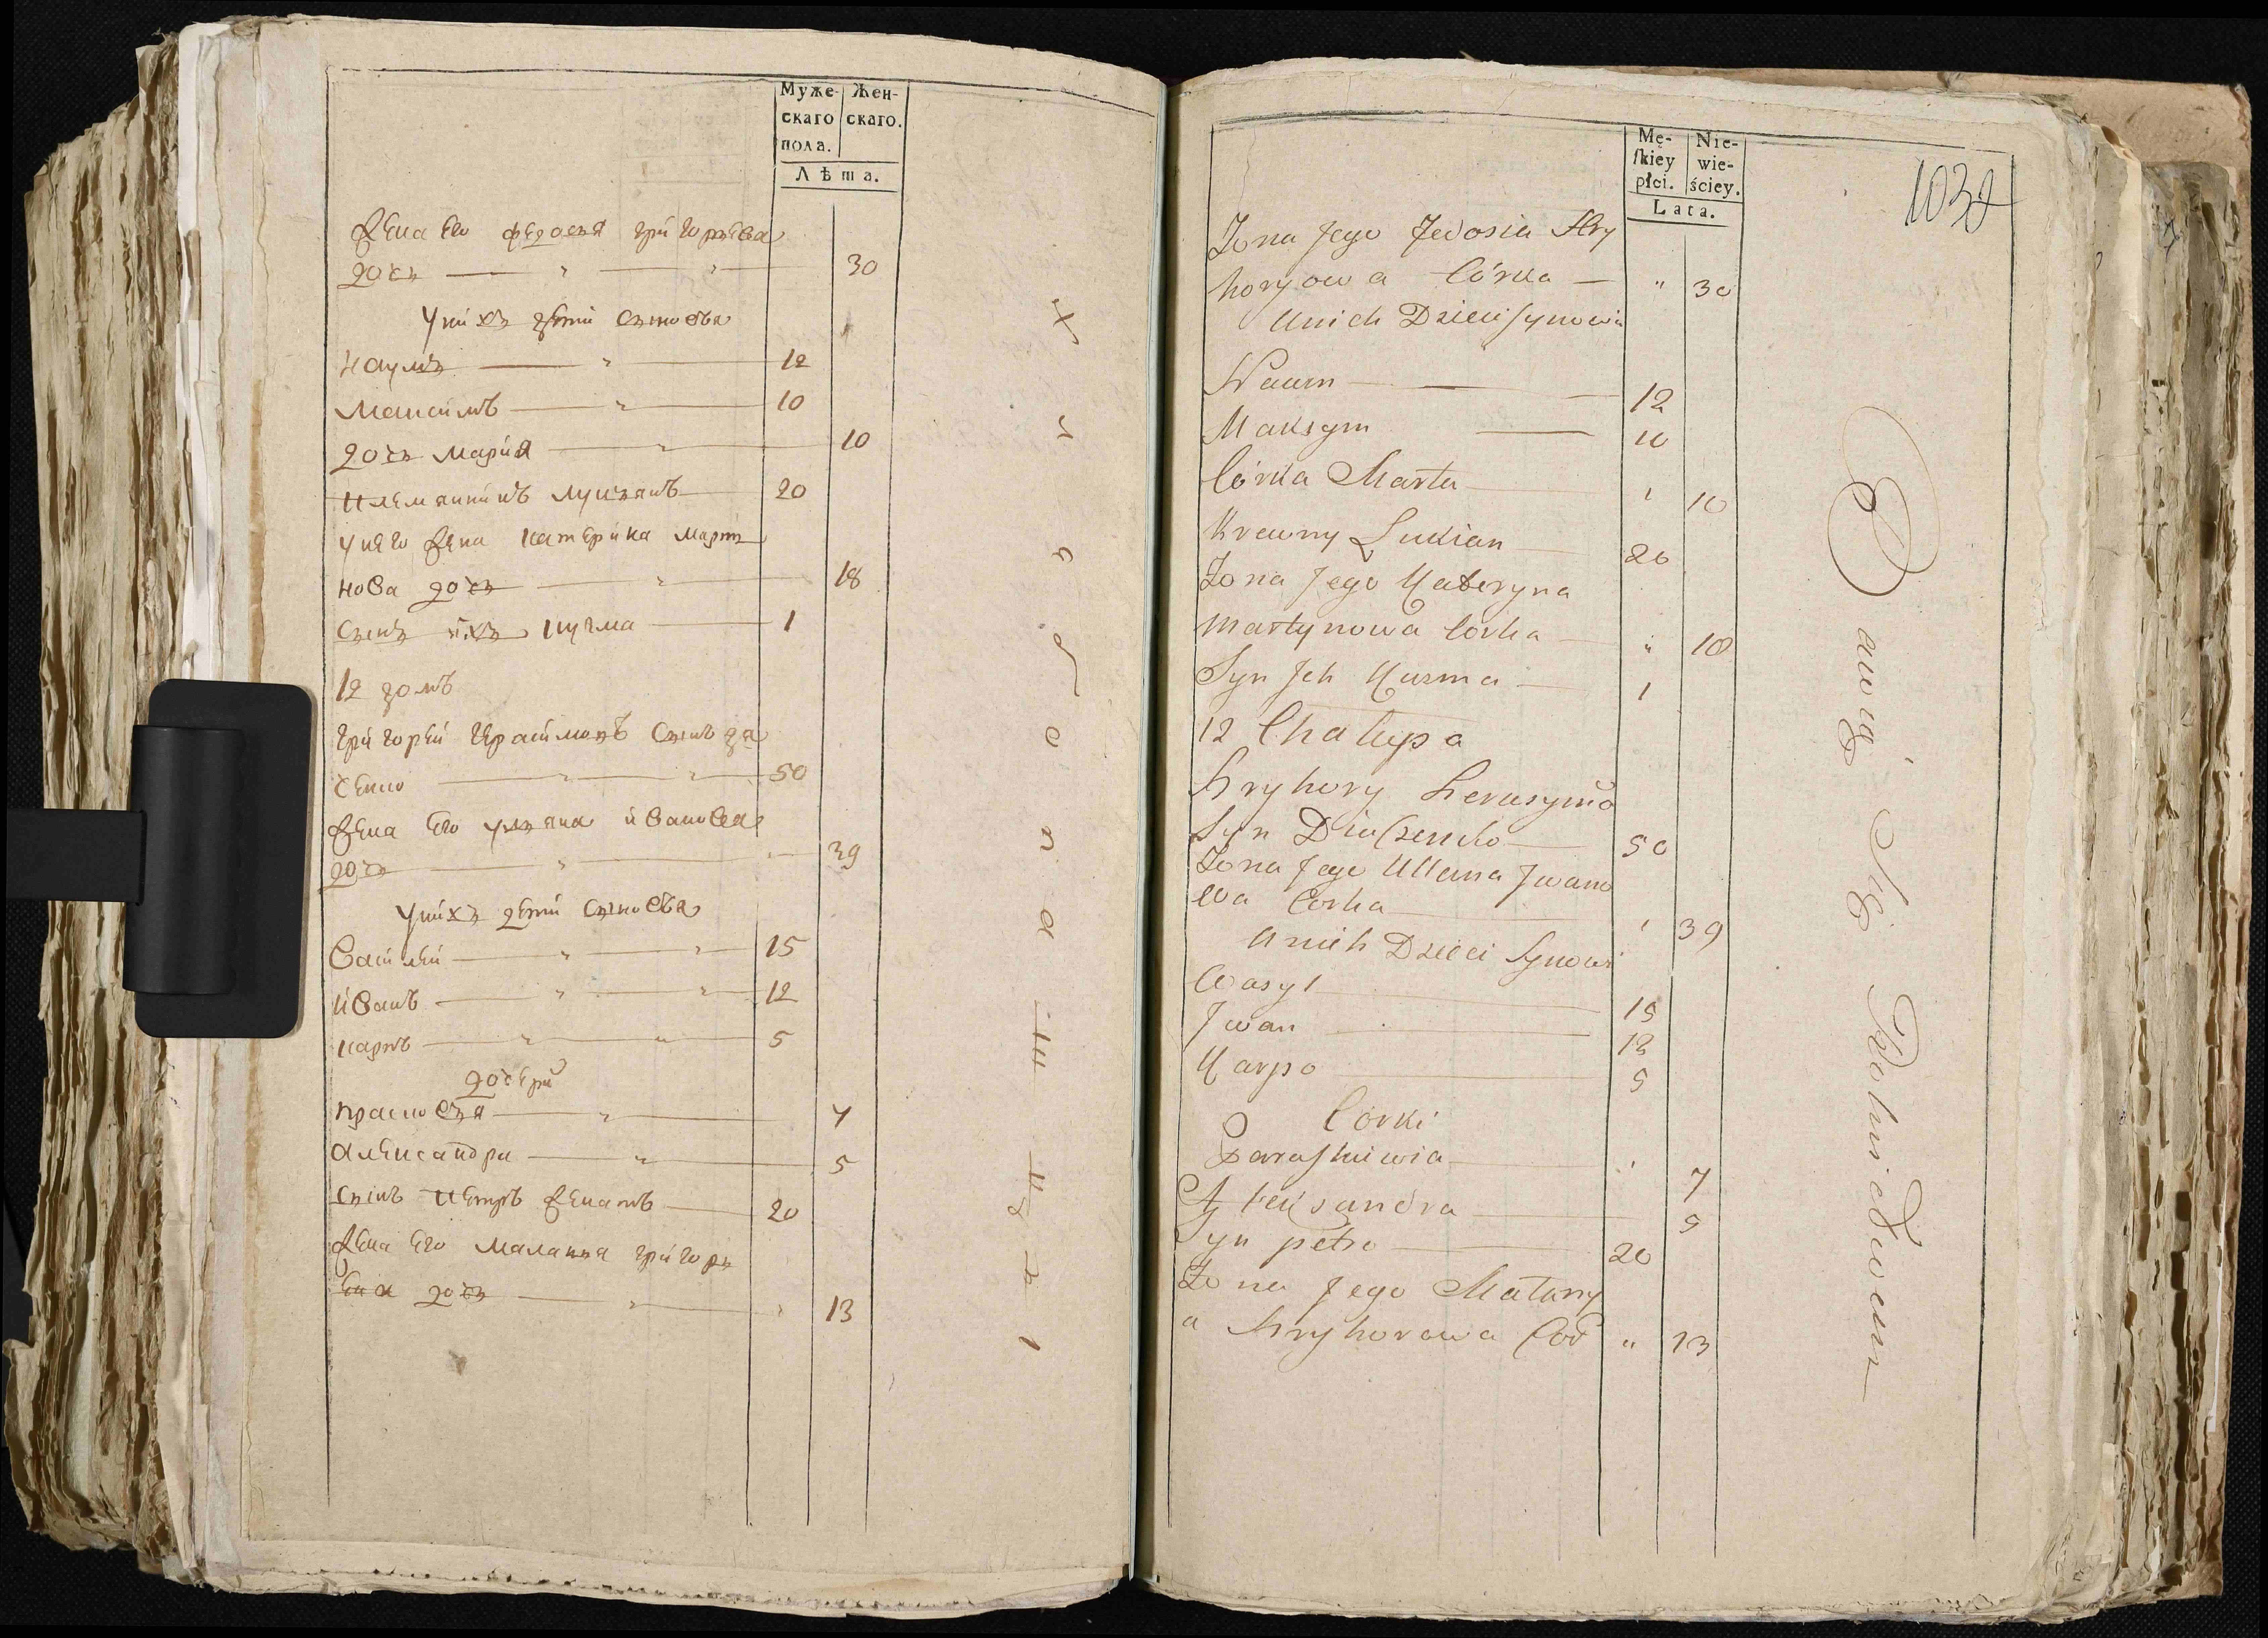 Муже-
скаго
пола.
Жен-
скаго.
Лѣта.
жена Его федосья григорьева
дочь 30
у нихъ дети сыновья
наумъ 12
максимъ 10
дочь мария 10
племянникъ лукьянъ 20
у него жена катерина марты
нова дочь 18
сынъ ихъ кузма 1
12 домъ
григорей герасимовъ сынъ дя
ченко 50
жена Его ульяна ивановa
дочь 39
у нихъ дети сыновья
василей 15
иванъ 12
карпъ 5
дочери
прасковья 7
александра 5
сынъ петръ женатъ 20
жена Его маланья григорь
ева дочь 13
Mę-
skiey
płci.
Nie-
wie-
ściey.
Lata.
1032
Zona Jego Fedosia Hry
horyowa Córka " 30
U nich Dzieci synowie
Naum 12
Maksym 10
Córka Marta 10
Krewny Lukian 20
Zona Jego Kateryna
Martynowa Corka " 18
Syn Jch Kuzma 1
12 Chalupa
Hryhory Herasymo
Syn Diaczenko 50
Zona Jego Ullana Jwano
wa Corka 39
U nich Dzieci Synowi
Wasyl 15
Jwan 12
Karpo 5
Córki
Paraskiewia 7
Alexandra 5
Syn petro 20
Zona Jego Malany
a Hryhorowa Cor " 13